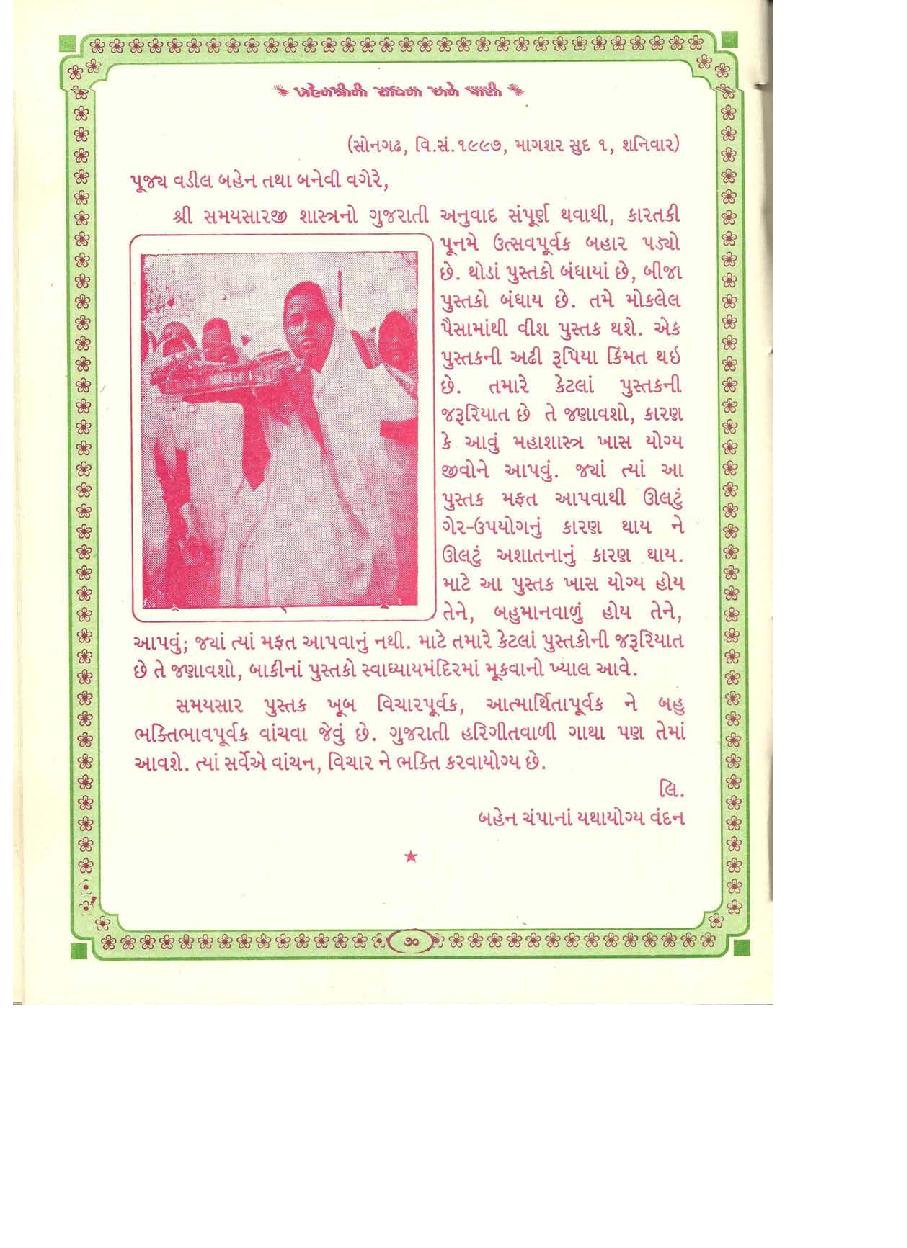 બહેનશ્રીની સાધના અને વાણી
(સોનગઢ, વિ.સં.૧૯૯૭, માગશર સુદ ૧, શનિવાર)
પૂજ્ય વડીલ બહેન તથા બનેવી વગેરે,
શ્રી સમયસારજી શાસ્ત્રનો ગુજરાતી અનુવાદ સંપૂર્ણ થવાથી, કારતકી
પૂનમે ઉત્સવપૂર્વક બહાર પડ્યો
છે. થોડાં પુસ્તકો બંધાયાં છે, બીજા
પુસ્તકો બંધાય છે. તમે મોકલેલ
પૈસામાંથી વીશ પુસ્તક થશે. એક
પુસ્તકની અઢી રૂપિયા કિંમત થઇ
છે. તમારે કેટલાં પુસ્તકની
જરૂરિયાત છે તે જણાવશો, કારણ
કે આવું મહાશાસ્ત્ર ખાસ યોગ્ય
જીવોને આપવું. જ્યાં ત્યાં આ
પુસ્તક મફત આપવાથી ઊલટું
ગેર-ઉપયોગનું કારણ થાય ને
ઊલટું અશાતનાનું કારણ થાય.
માટે આ પુસ્તક ખાસ યોગ્ય હોય
તેને, બહુમાનવાળું હોય તેને,
આપવું; જ્યાં ત્યાં મફત આપવાનું નથી. માટે તમારે કેટલાં પુસ્તકોની જરૂરિયાત
છે તે જણાવશો, બાકીનાં પુસ્તકો સ્વાધ્યાયમંદિરમાં મૂકવાનો ખ્યાલ આવે.
સમયસાર પુસ્તક ખૂબ વિચારપૂર્વક, આત્માર્થિતાપૂર્વક ને બહુ
ભક્તિભાવપૂર્વક વાંચવા જેવું છે. ગુજરાતી હરિગીતવાળી ગાથા પણ તેમાં
આવશે. ત્યાં સર્વેએ વાંચન, વિચાર ને ભક્તિ કરવાયોગ્ય છે.
લિ.
બહેન ચંપાનાં યથાયોગ્ય વંદન
૭૦